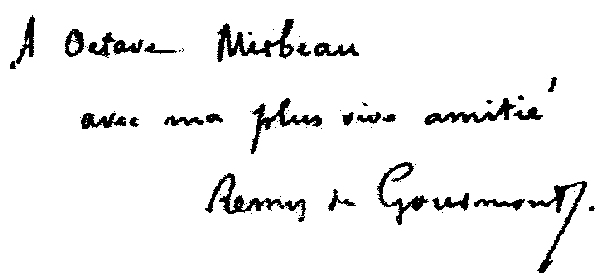 A Octave Mirbeau
avec ma plus vive amitié
Remy de Gourmont.